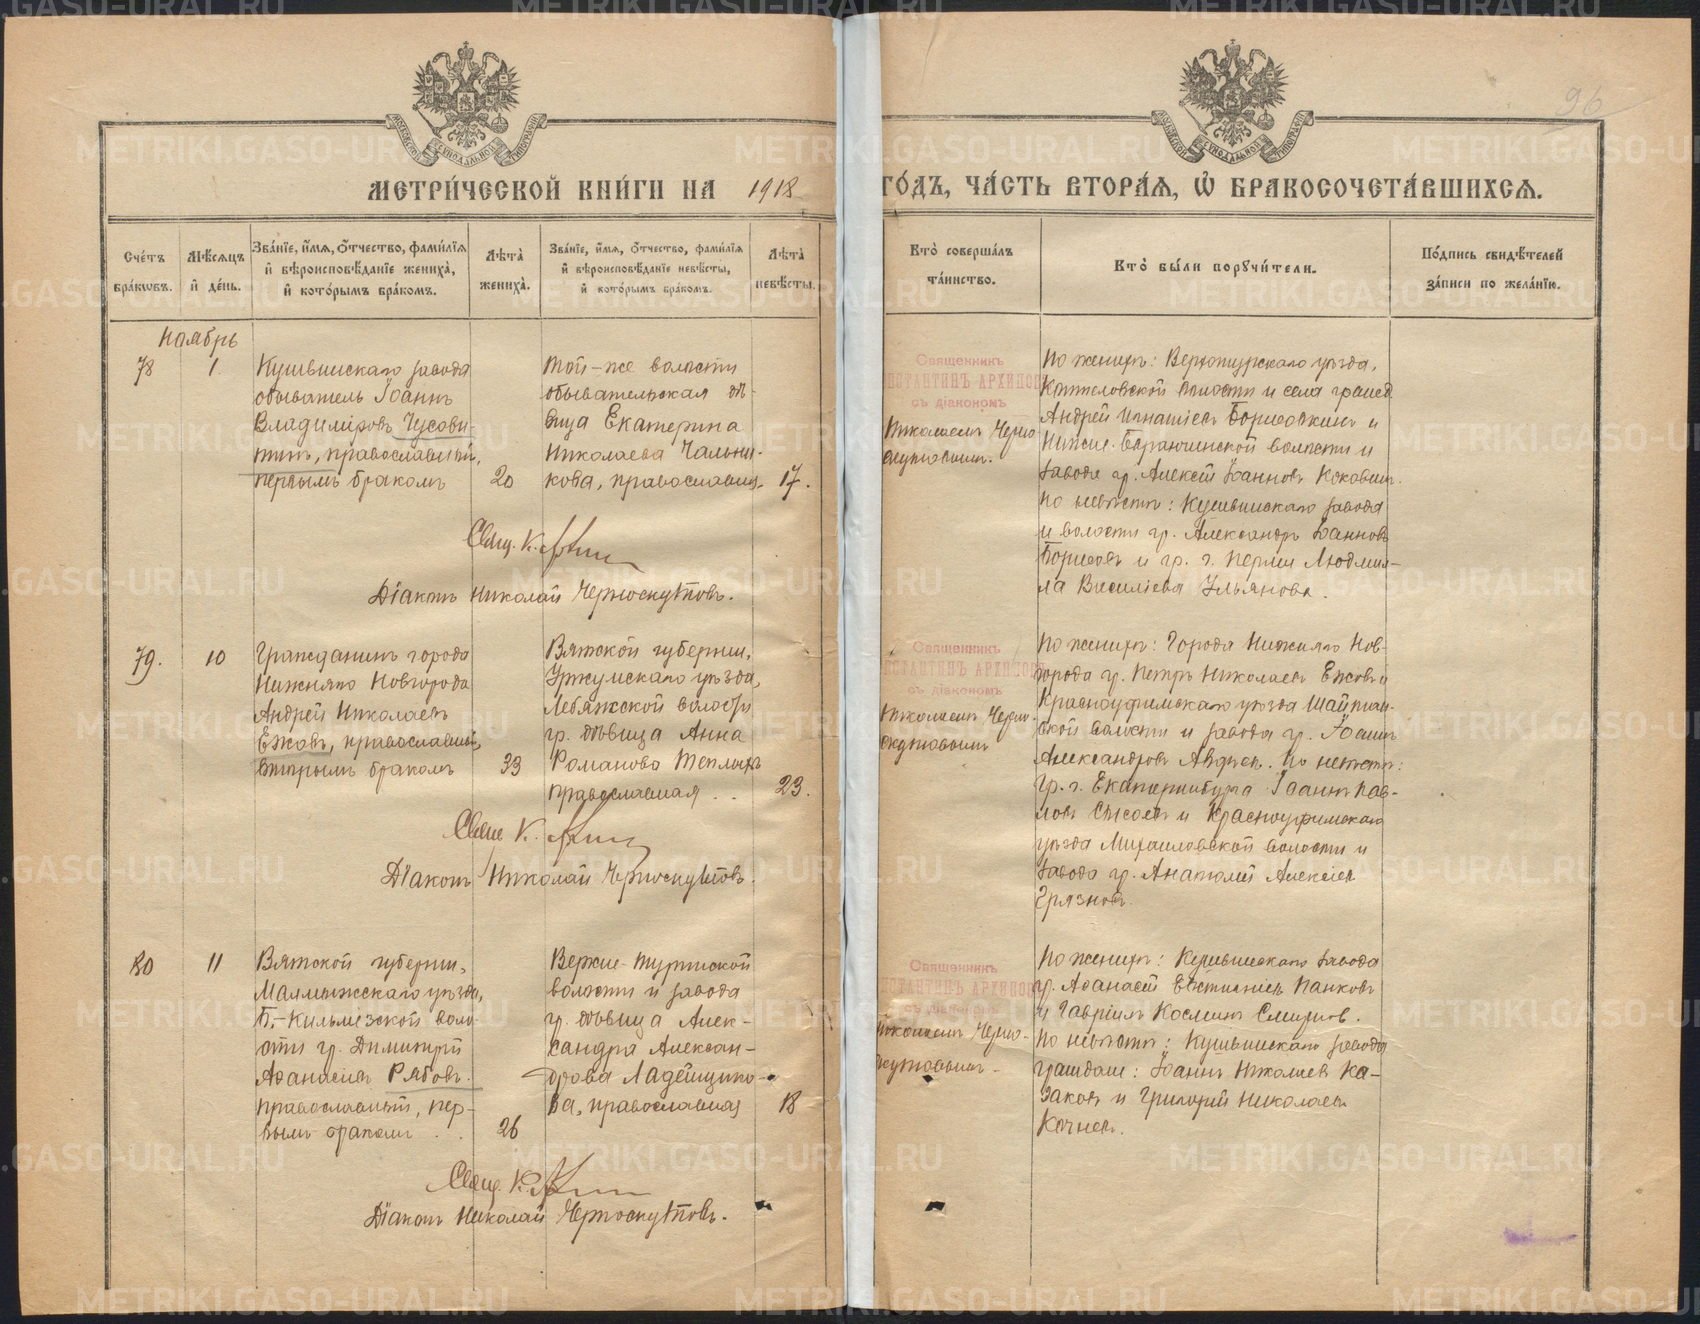 96
МЕТРИ́ЧЕСКОЙ КНИ́ГИ НА 1918 ГО́ДЪ, ЧА́СТЬ ВТОРА́Я, Ѡ҆ БРАКОСОЧЕТА́ВШИХСЯ.
Сче́тъ бра́ковъ.
Мѣ́сяцъ и҆ де́нь.
Зва́нїе, и҆́мя, ѻ҆́тчество, фами́лїя
и҆ вѣроисповѣ́данїе жениха̀,
и҆ кото́рымъ бра́комъ.
Лѣта̀ жениха̀.
Зва́нїе, и҆́мя, ѻ҆́тчество, фами́лїя
и҆ вѣроисповѣ́данїе невѣ́сты,
и҆ кото́рымъ бра́комъ.
Лѣта̀ невѣ́сты.
Кто̀ соверша́лъ та́инство.
Кто̀ бы́ли порꙋчи́тели.
По́дпись свидѣ́телей за́писи по жела́нїю.
Ноябрь
78
1
Кушвинскаго завода
обыватель Іоаннъ
Владиміровъ Чусови-
тинъ, православный,
первымъ бракомъ
20
Той-же волости
обывательская дѣ-
вица Екатерина
Николаева Чальни-
кова, православн.
17.
Священникъ
КОНСТАНТИНЪ АРХИПОВЪ
съ діакономъ
Николаемъ Черно-
скутовымъ.
По женихѣ: Верхотурскаго уѣзда,
волости и села гражд.
Андрей Игнатіевъ и
Нижне-Баранчинской волости и
завода гр. Алексѣй Іоанновъ
По невѣстѣ: Кушвинскаго завода
и волости гр. Александръ Іоанновъ
Борисовъ и гр. г. Перми Людми-
ла Василіева Ульянова.
Свящ. К. Архип
Діаконъ Николай Черноскутовъ.
79.
10
Гражданинъ города
Нижняго Новгорода
Андрей Николаевъ
Ежовъ, православный,
вторымъ бракомъ
33
Вятской губерніи,
Уржумскаго уѣзда,
Лебяжской волости
гр. дѣвица Анна
Романова Теплыхъ
православная
23.
Священникъ
КОНСТАНТИНЪ АРХИПОВЪ
съ діакономъ
Николаемъ Черно-
скутовымъ
По женихѣ: Города Нижняго Нов-
города гр. Петръ Николаевъ Ежовъ и
Красноуфимскаго уѣзда Шайтан-
ской волости и завода гр. Іоаннъ
Александровъ. По невѣстѣ:
гр. г. Екатеринбурга Іоаннъ Пав-
ловъ Сысоевъ и Красноуфимскаго
уѣзда Михайловской волости и
завода гр. Анатолій Алексіев
Грязновъ.
Свящ. К. Архип
Діаконъ Николай Черноскутовъ.
80
11
Вятской губерніи,
Малмыжскаго уѣзда,
Б.-Кильмезской воло-
сти гр. Димитрій
Аѳанасіевъ Рябовъ.
православный, пер-
вымъ бракомъ
26
Верхне-Туринской
волости и завода
гр. дѣвица Алек-
сандра Алексан-
дрова Ладейщико-
ва, православная
18
Священникъ
КОНСТАНТИНЪ АРХИПОВЪ
съ діакономъ
Николаемъ Черно-
скутовымъ.
По женихѣ: Кушвинскаго завода
гр. Аѳанасій Панковъ
и Гавріилъ Косминъ Смирнов.
По невѣстѣ: Кушвинскаго завода
граждане: Іоаннъ Николаевъ Ка-
заковъ и Григорій Николаевъ
Кочневъ.
Свящ. К. Архип
Діаконъ Николай Черноскутовъ.
METRIKI.GASO-URAL.RU